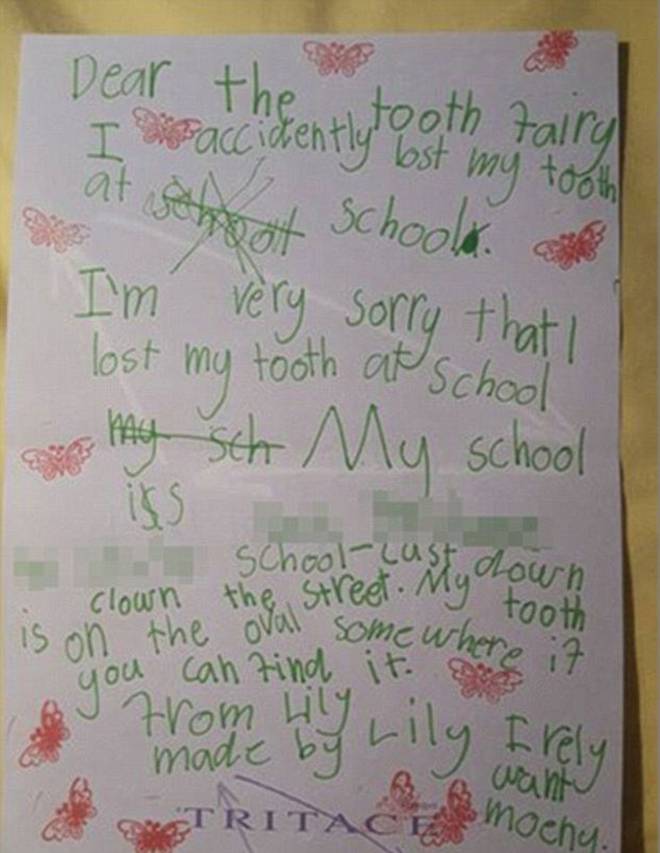 Dear the tooth fairy
I accidently lost my tooth
at school school.
I'm very sorry that I
lost my tooth at school
my sch My school
is
school-Just down
down the street. My tooth
is on the oval somewhere if
you can find it.
From Lily
made by Lily I rely
want
moeny.
TRITACE